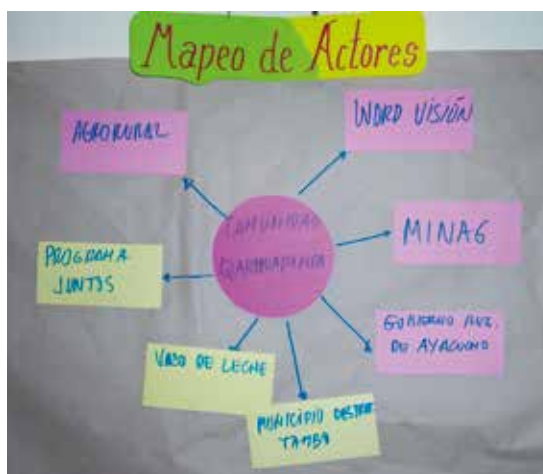 Mapeo de Actores
AGRORURAL
WORD VISIÓN
COMUNIDAD
MINAG
PROGRAMA
JUNTOS
GOBIERNO
DE AYACUCHO
VASO DE LECHE
MUNICIPIO
TAMBO